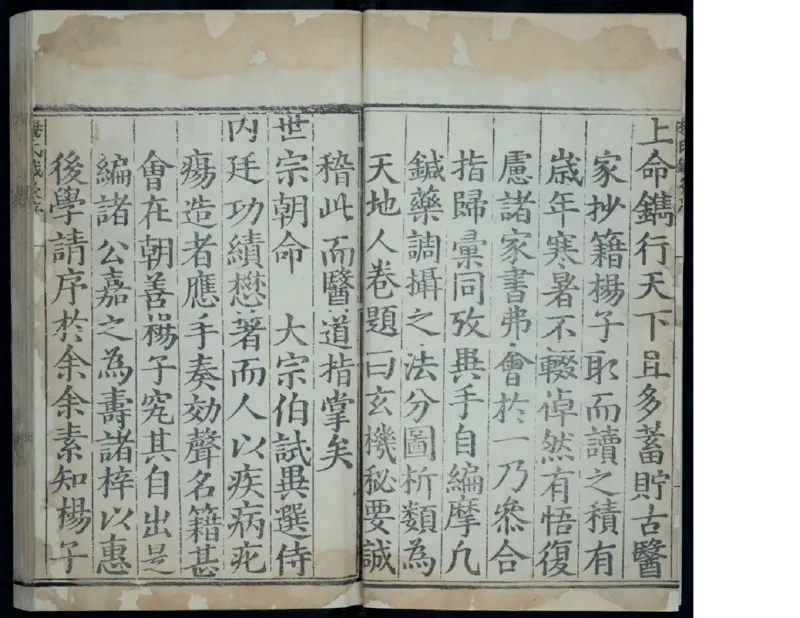 上命鐫行天下且多蓄貯古醫
家抄籍楊子取而讀之積有
歲年寒暑不輟倬然有悟復
慮諸家書弗會於一乃參合
指歸彙同攷異手自編摩凡
鍼藥調攝之法分圖析類為
天地人卷題曰玄機秘要誠
稽此而醫道指掌矣
世宗朝命 大宗伯試異選侍
內廷功績懋著而人以疾病疕
瘍造者應手奏効聲名籍甚
會在朝善楊子究其自出是
編諸 公嘉之為壽諸梓以惠
後學請序於余余素知楊子